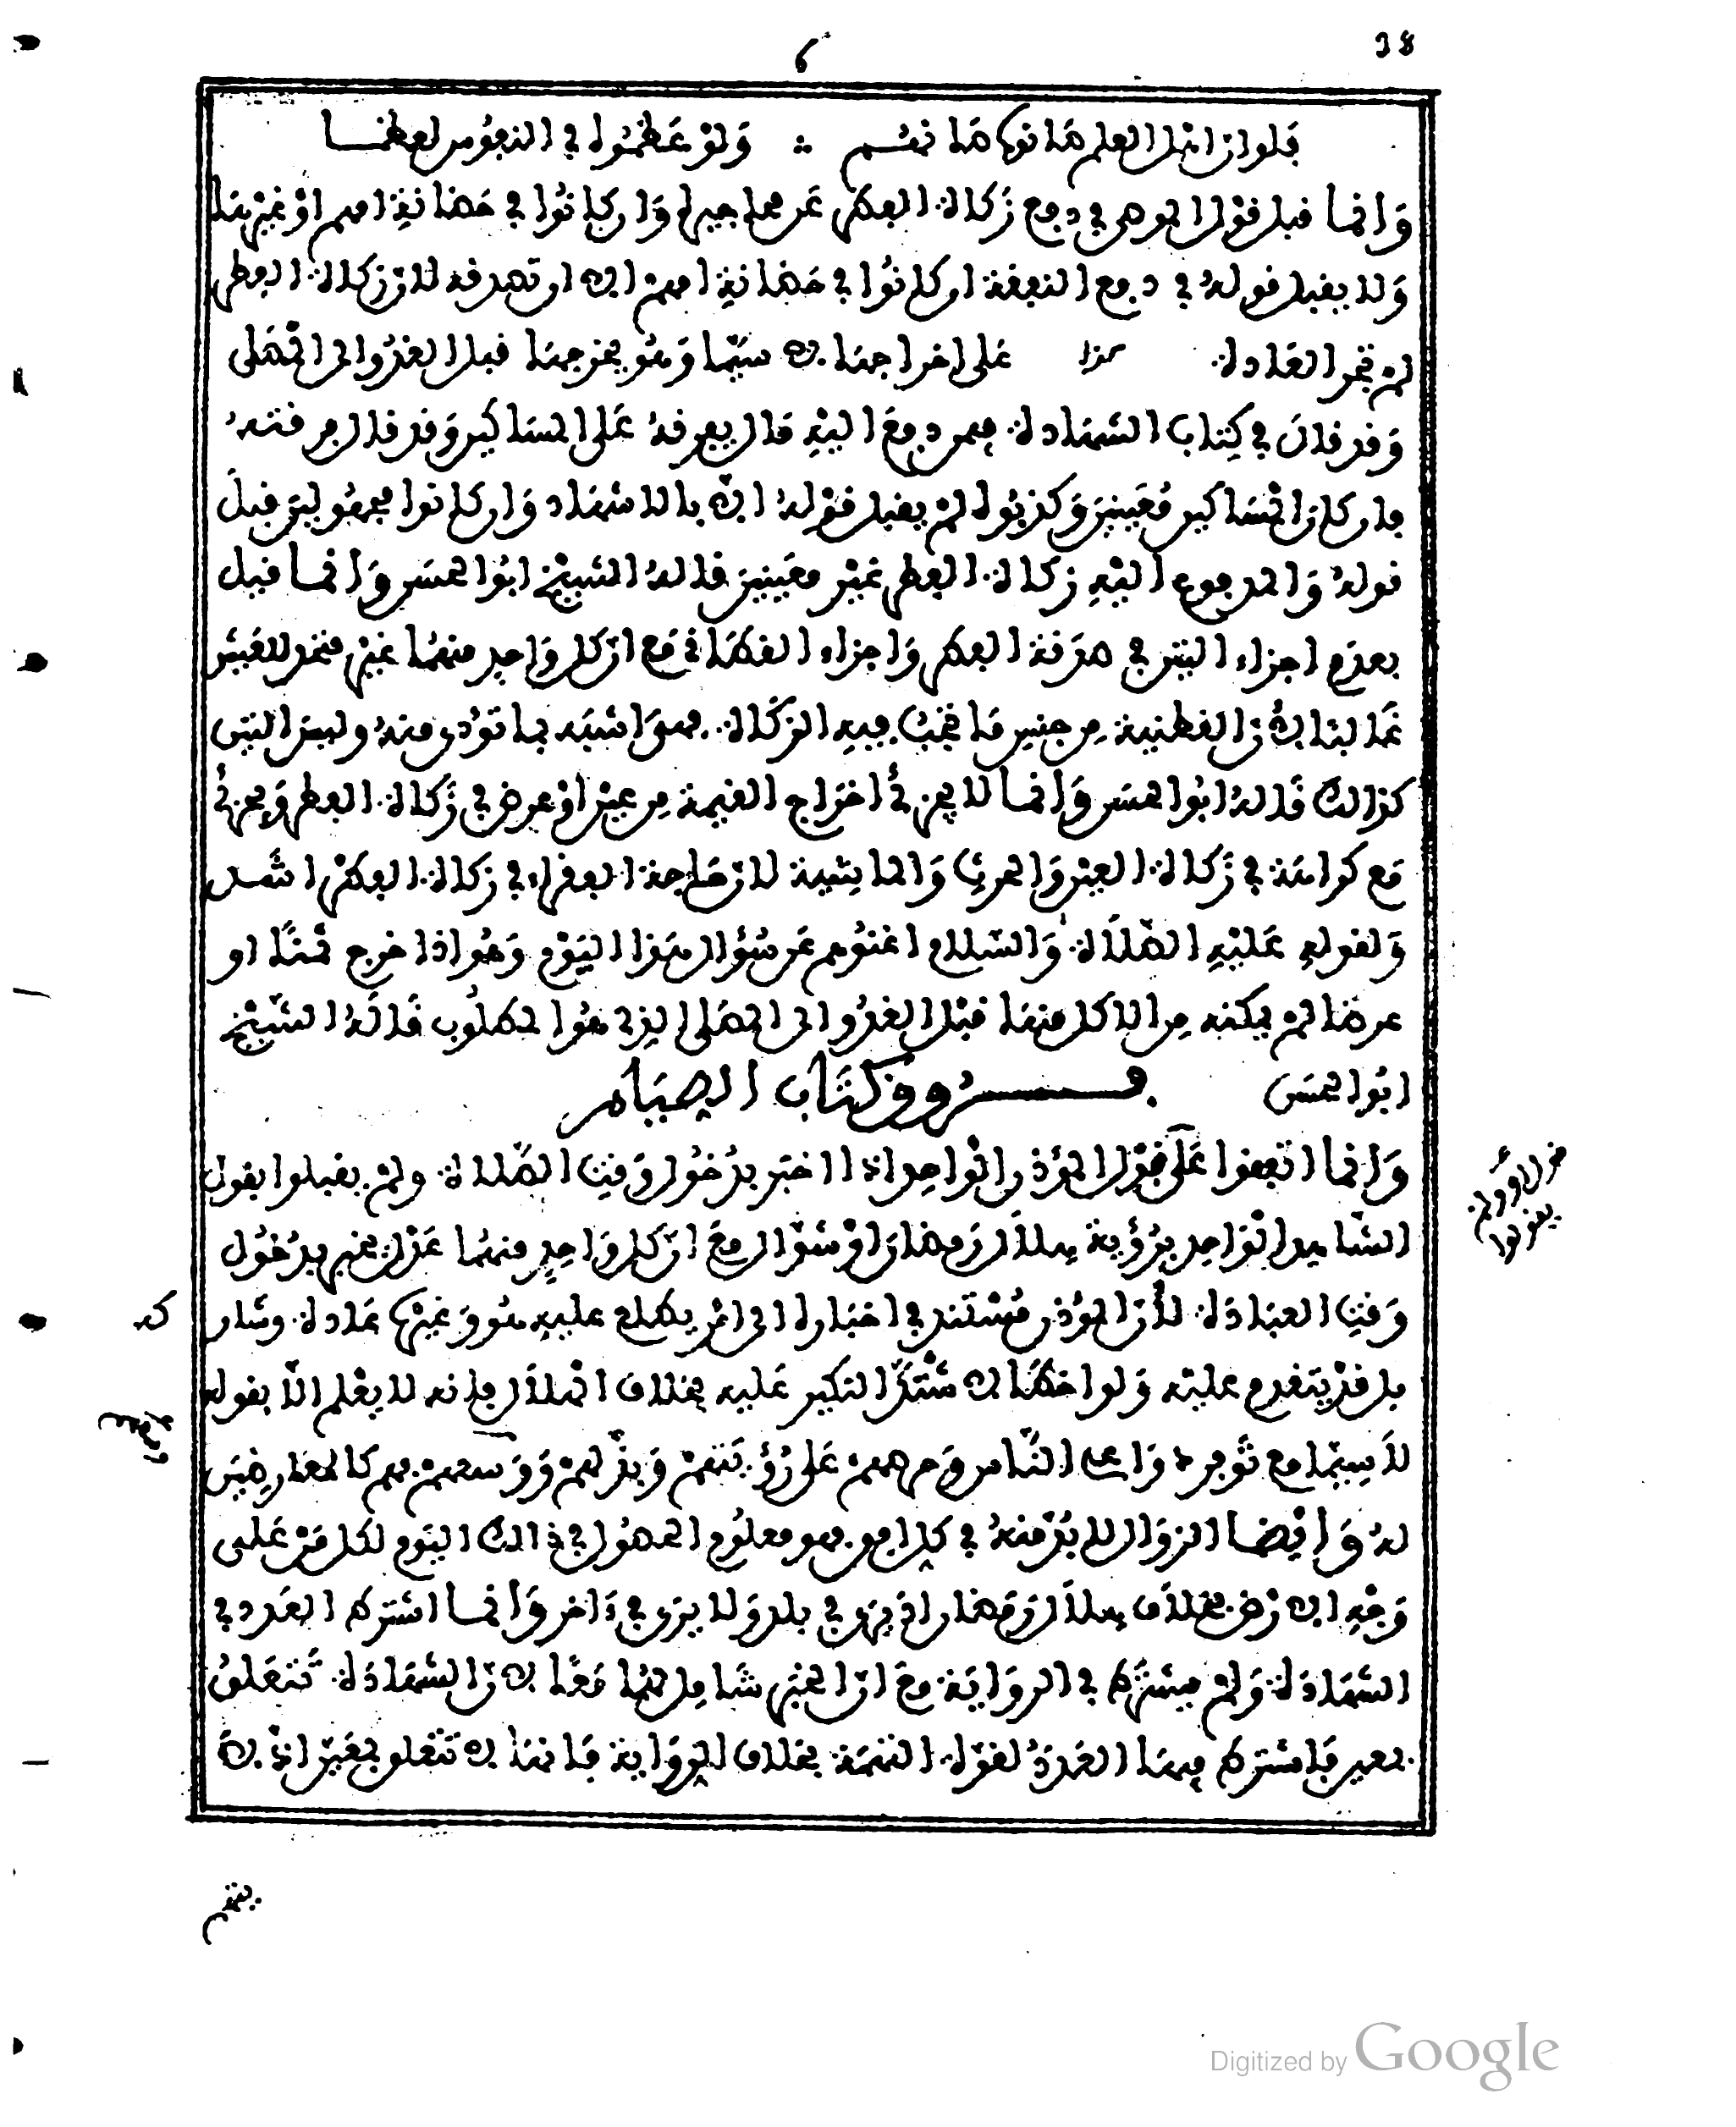 38
6
فلو أن أهل العلم صانوه صانهم ∴ ولو عظموه في النفوس لعظما
وإنما قبل قول الوصي في دفع زكاة الفطر عن محاجيره وإن كانوا في حضانة أمهم أو غيرها
ولا يقبل قوله في دفع النفقة إن كانوا في حضانة أمهم إلا أن تصدقه لأن زكاة الفطر
لم تجر العادة كذا على إخراجها لا سيما وهو يخرجها قبل الغدو إلى المصلى
وقد قال في كتاب الشهادة فيمن دفع إليه مال يفرقه على المساكين وقد قال فرقته
فإن كان المساكين معينين وكذبوه لم يقبل قوله إلا بالاشهاد وإن كانوا مجهولين قبل
قوله والمدفوع إليه زكاة الفطر غير معينين قاله الشيخ أبو الحسن وإنما قيل
بعدم إجزاء التين في صدقة الفطر وإجزاء القطاني مع أن كل واحد منهما غير مقتات للعيش
غالبا لأن القطنية من جنس ما تجب فيه الزكاة فهو أشبه بما تؤدى منه وليس التين
كذالك قاله أبو الحسن وإنما لا يجزئ إخراج القيمة من عين أو عرض في زكاة الفطر ويجزئ
مع كراهة في زكاة العين والحرث والماشية لأن حاجة الفقراء في زكاة الفطر أشد
ولقوله عليه الصلاة والسلام أغنوهم عن سؤال هذا اليوم وهو إذا خرج ثمنا أو
عرضا لم يمكنه من الأكل منها قبل الغدو إلى المصلى الذي هو المطلوب قاله الشيخ
أبو الحسن فروق كتاب الصيام
وإنما اتفقوا على قول المؤذن الواحد إذا أخبر بدخول وقت الصلاة ولم يقبلوا بقول
الشاهد الواحد برؤية هلال رمضان أو شوال مع أن كل واحد منهما عدل يخبر بدخول
وقت العبادة لأن المؤذن مستند في إخباره إلى أمر يطلع عليه هو وغيره عادة وشار
بل قد يتقدم عليه ولو أخطأ لاشتد النكير عليه بخلاف الهلال فإنه لا يعلم إلا بقوله
لا سيما مع توفر دواعي الناس وحرصهم على رؤيتهم وبذلهم ووسعهم فهم كالمعارضين
له وأيضا الزوال لا بد منه في كل أفق فهو معلوم الحصول في ذالك اليوم لكل من على
وجه الأرض بخلاف هلال رمضان إذ يرى في بلد ولا يرى في ءاخر وإنما اشترط العدد في
الشهادة ولم يشترط في الرواية مع أن الخبر شامل لهما معا لأن الشهادة تتعلق
بمعين فاشترط فيها العدد لقوة التهمة بخلاف الرواية فإنها لا تتعلق بمعين إذ لا
يتهم